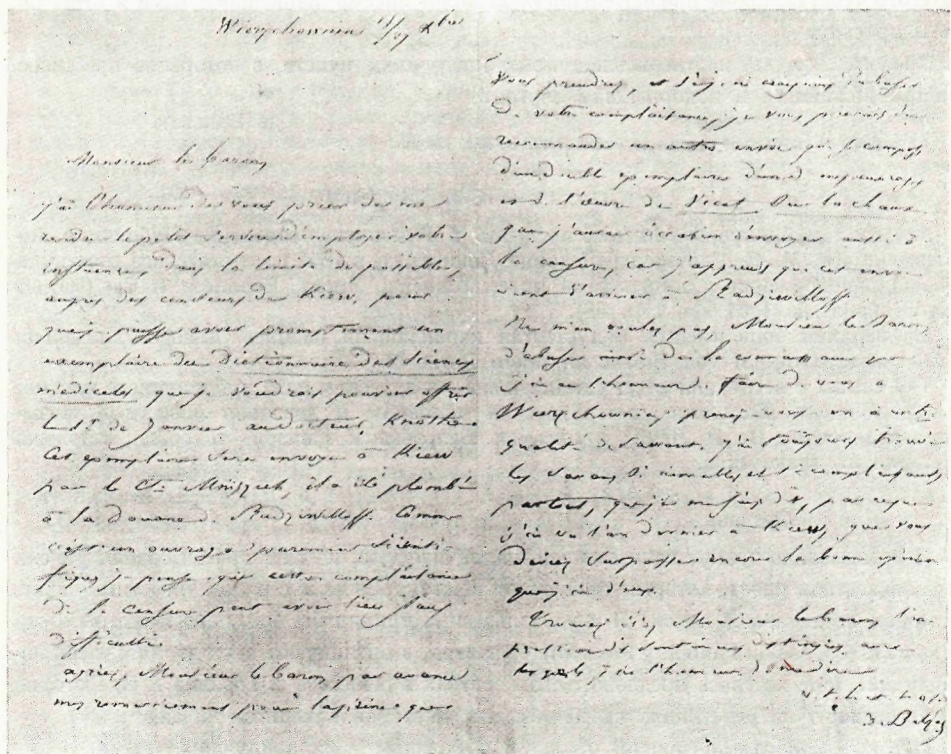 Wierzchownia
Monsieur le baron
j'ai l'honneur de vous prier de me
rendre le petit service d'employer votre
influence, dans la limite du possible,
auprès des censeurs de Kiew, pour
que je puisse avoir promptement un
exemplaire du Dictionnaire des Sciences
médicales que je voudrais pouvoir offrir
le 1er de Janvier au docteur Knothe
Cet exemplaire sera envoyé à Kiew
par le Cte Mniszech, il a été plombé
à la douane de Radziwilloff. Comme
c'est un ouvrage purement scienti-
fique je pense que cette complaisance
de la censure peut avoir lieu sans
difficulté.
agréez, Monsieur le baron par avance
mes remerciements pour la peine que
vous prendrez, et si je ne craignais d'abuser
de votre complaisance, je vous prierais de
recommander un autre envoi qui se compose
d'un double exemplaire d'un
et de l'œuvre de Vicat Sur la chaux
que j'aurai occasion d'envoyer aussi à
la censure, car j'apprends que cet envoi
vient d'arriver à Radziwilloff.
Ne m'en voulez pas, Monsieur le Baron,
d'abuser ainsi de la connaissance que
j'ai eu l'honneur de faire de vous à
Wierzchownia, prenez-vous en à votre
qualité de savant, j'ai toujours trouvé
les savans si aimables et si complaisants
partout, que je me suis dit, par ce que
j'ai vu l'an dernier à Kiew, que vous
deviez surpasser encore la bonne opinion
que j'ai d'eux.
Trouvez ici, Monsieur le baron l'ex-
pression des sentiments distingués avec
lesquels j'ai l'honneur d'être
de Balzac